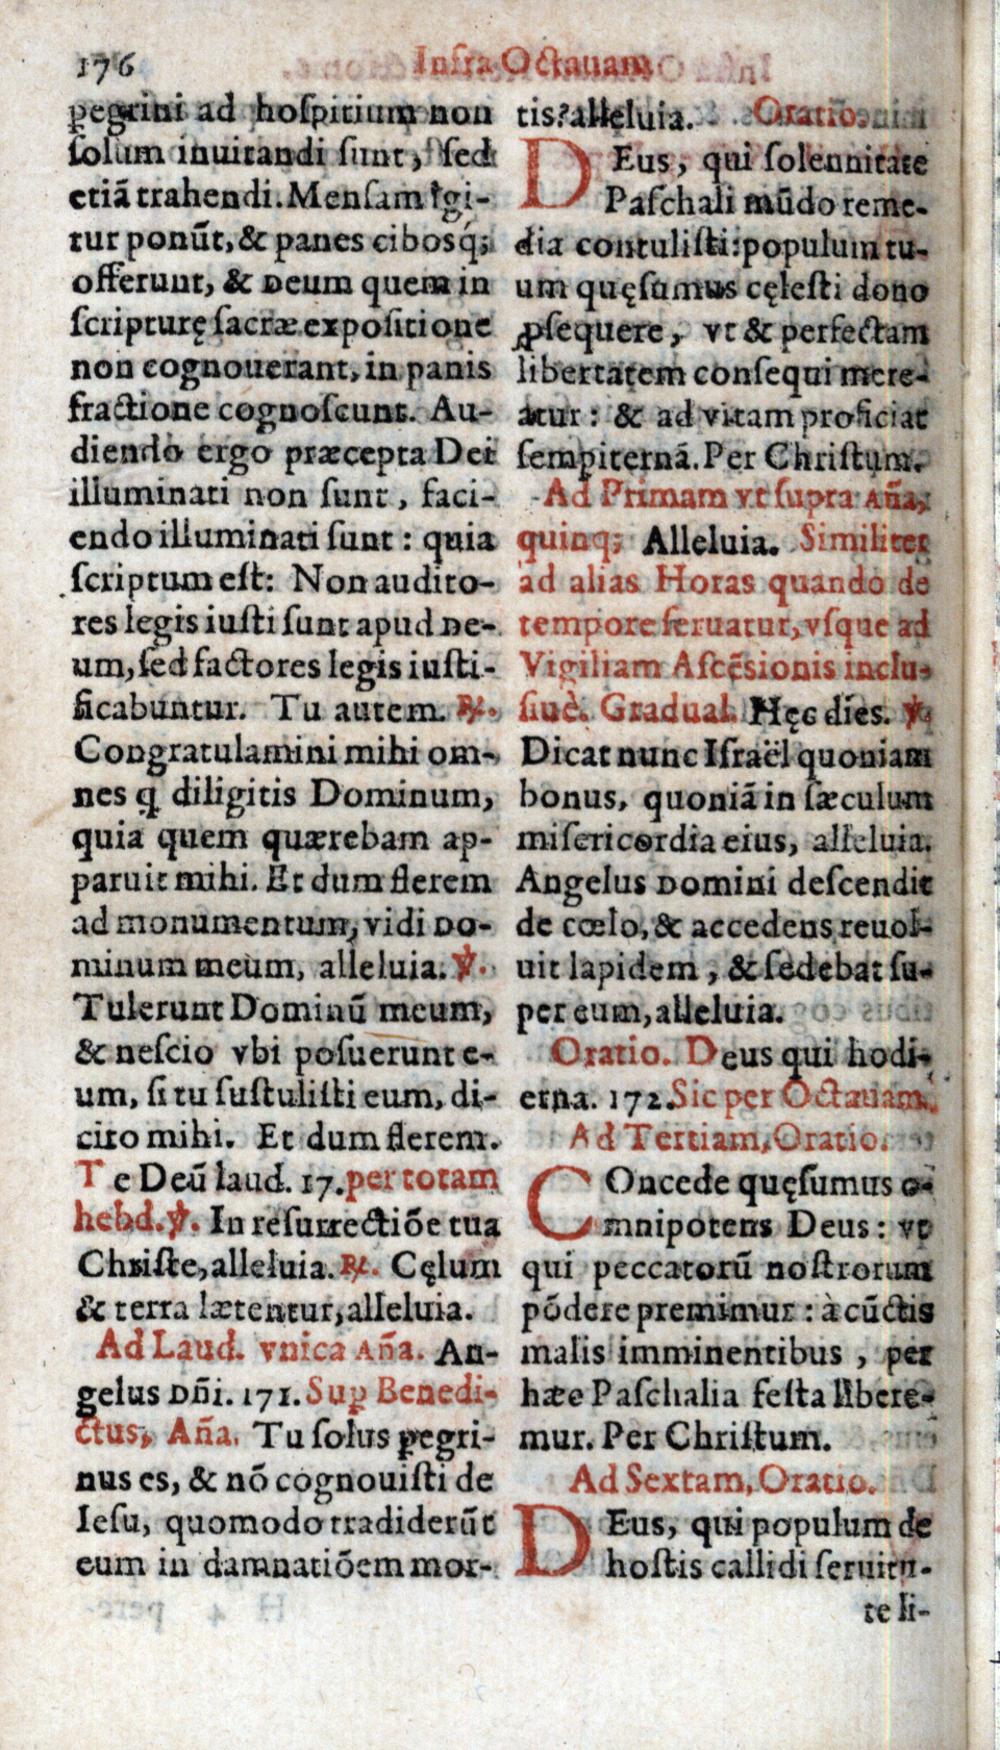 176
Infra Octauam
pegrini ad hoſpitium non
ſolum inuitandi ſunt, ſed
etiã trahendi. Menſam igi-
tur ponũt, & panes cibosq́;
offerunt, & Deum quem in
ſcripturę ſacræ expoſitione
non cognouerant, in panis
fractione cognoſcunt. Au-
diendo ergo præcepta Dei
illuminati non ſunt, faci-
endo illuminati ſunt: quia
ſcriptum eſt: Non audito-
res legis iuſti ſunt apud De-
um, ſed factores legis iuſti-
ficabuntur. Tu autem. ℟.
Congratulamini mihi om-
nes q̃ diligitis Dominum,
quia quem quærebam ap-
paruit mihi. Et dum flerem
ad monumentum, vidi Do-
minum meum, alleluia. ℣.
Tulerunt Dominũ meum,
& neſcio vbi poſuerunt e-
um, ſi tu ſuſtuliſti eum, di-
cito mihi. Et dum flerem.
Te Deũ laud. 17. per totam
hebd. ℣. In reſurrectiõe tua
Chriſte, alleluia. ℟. Cęlum
& terra lætentur, alleluia.
Ad Laud. vnica Aña. An-
gelus Dñi. 171. Sup Benedi-
ctus, Aña. Tu ſolus pegri-
nus es, & nõ cognouiſti de
Ieſu, quomodo tradiderũt
eum in damnatiõem mor-
tis? alleluia. Oratio.
DEus, qui ſolennitate
Paſchali mũdo reme-
dia contuliſti: populum tu-
um quęſumus cęleſti dono
ꝓſequere, vt & perfectam
libertatem conſequi mere-
atur: & ad vitam proficiat
ſempiternã. Per Chriſtum.
Ad Primam vt ſupra Aña,
quinq; Alleluia. Similiter
ad alias Horas quando de
tempore ſeruatur, vſque ad
Vigiliam Aſcẽſionis inclu-
ſiuè. Gradual. Hęc dies. ℣.
Dicat nunc Iſraël quoniam
bonus, quoniã in ſæculum
miſericordia eius, alleluia.
Angelus Domini deſcendit
de cœlo, & accedens reuol-
uit lapidem, & ſedebat ſu-
per eum, alleluia.
Oratio. Deus qui hodi-
erna. 172. Sic per Octauam.
Ad Tertiam, Oratio.
COncede quęſumus o-
mnipotens Deus: vt
qui peccatorũ noſtrorum
põdere premimur: à cũctis
malis imminentibus, per
hæc Paſchalia feſta libere-
mur. Per Chriſtum.
Ad Sextam, Oratio.
DEus, qui populum de
hoſtis callidi ſeruitu-
te li-